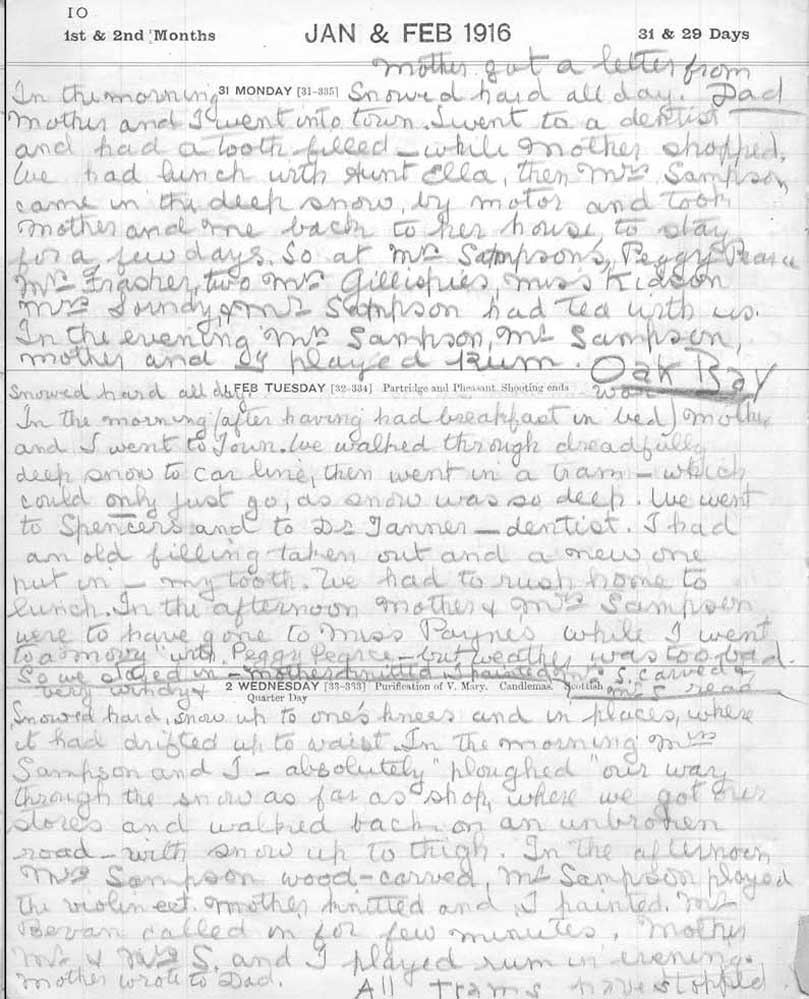 10
1st & 2nd Months JAN & FEB 1916 31 & 29 Days
Mother got a letter from
In the morning 31 MONDAY [31-335] Snowed hard all day. Dad
Mother and I went into town. I went to a dentist
and had a tooth filled – while Mother shopped.
We had lunch with Aunt Ella, then Mrs Sampson
came in the deep snow, by motor and took
Mother and me back to her house, to stay
for a few days. So at Mrs Sampson's, Peggy Pearce
Mrs Frasher, two Mrs Gillispies, Miss Kidson
Mrs & Mr Sampson had tea with us.
In the evening Mrs Sampson, Mr Sampson,
Mother and I played Rum. Oak Bay
Snowed hard all day. 1 FEB TUESDAY [32-334] Partridge and Pheasant Shooting ends
In the morning (after having had breakfast in bed) Mother
and I went to Town. We walked through dreadfully
deep snow to car line, then went in a tram – which
could only just go, as snow was so deep. We went
to Spencers and to Dr Tanner – dentist. I had
an old filling taken out and a new one
put in – my tooth. We had to rush home to
lunch. In the afternoon Mother & Mrs Sampson
were to have gone to Miss Paynes while I went
to a "movy" with Peggy Pearce – but weather was too bad.
So we stayed in – Mother knitted I painted Mrs S. carved &
very windy & 2 WEDNESDAY [33-333] Purification of V. Mary. Candlemas. Scottish Mr S read
Quarter Day
Snowed hard, snow up to one's knees and in places, where
it had drifted up to waist. In the morning Mrs
Sampson and I – absolutely "ploughed" our way
through the snow as far as shop, where we got our
stores and walked back on an unbroken
road – with snow up to thigh. In the afternoon
Mrs Sampson wood-carved, Mr Sampson played
the violin ect. Mother knitted and I painted. Mr
Bevan called in for few minutes. Mother
Mr & Mrs S. and I played rum in evening.
Mother wrote to Dad. All trams have stopped.